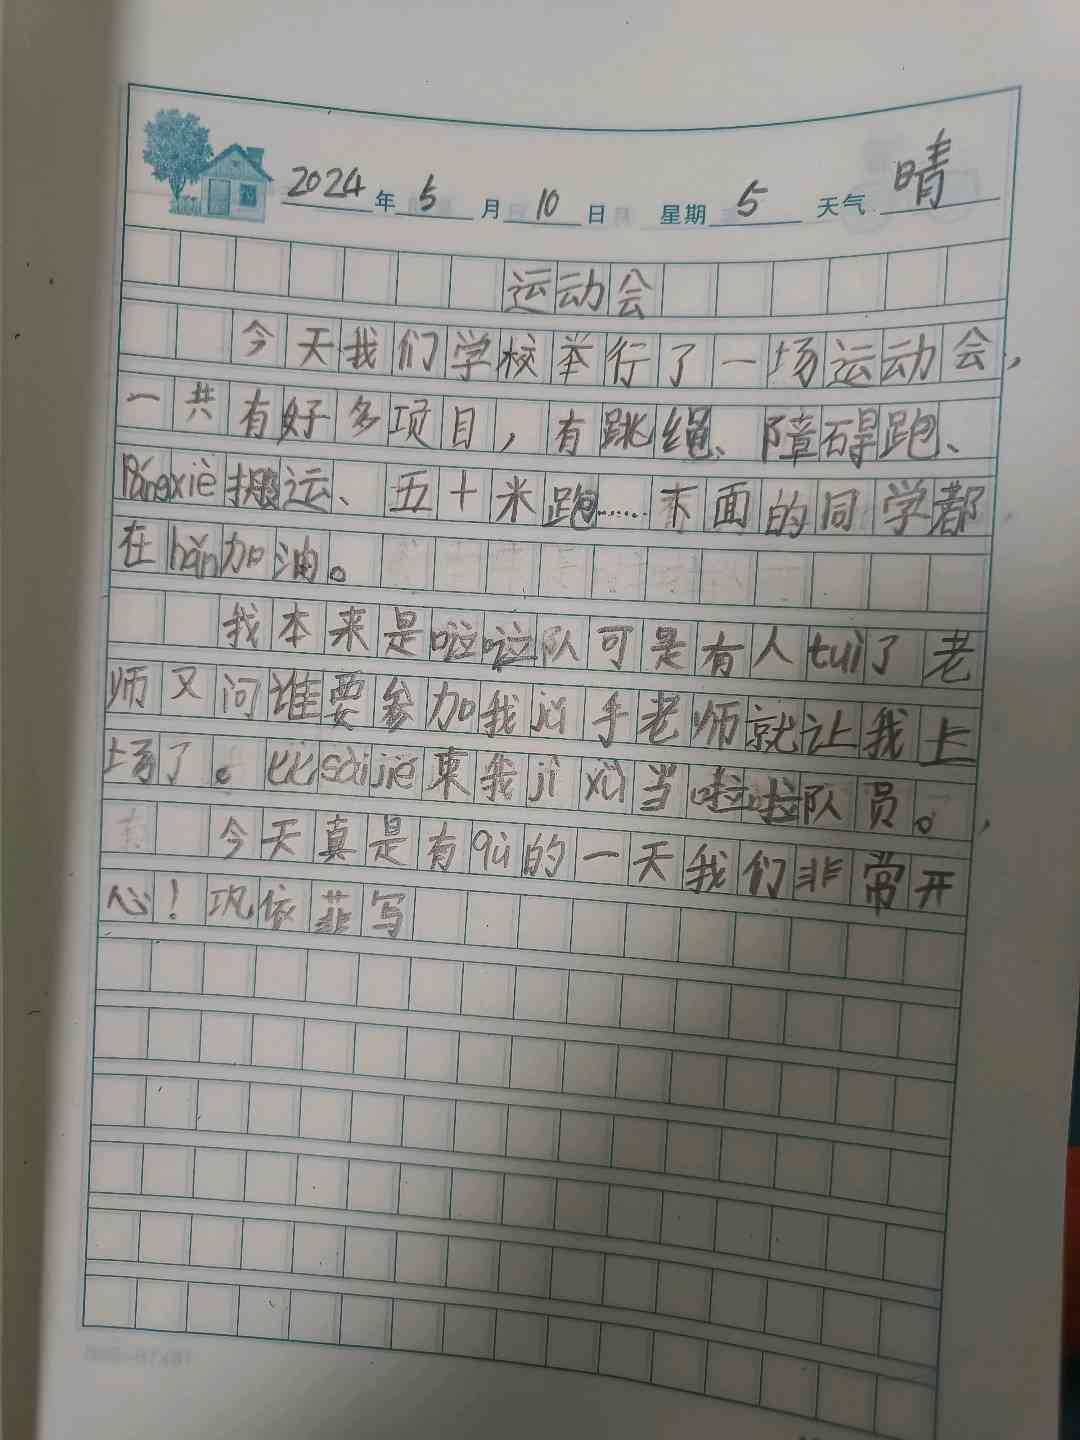 2024年5月10日 星期5 天气晴
运动会
今天我们学校举行了一场运动会,
一共有好多项目,有跳绳、障碍跑、
Pángxiè搬运、五十米跑……下面的同学都
在hǎn加油。
我本来是啦啦队可是有人tuì了老
师又问谁要参加我jǔ手老师就让我上
场了。比sàijié束我jì xù当啦啦队员。,
今天真是有qù的一天我们非常开
心!巩依菲写